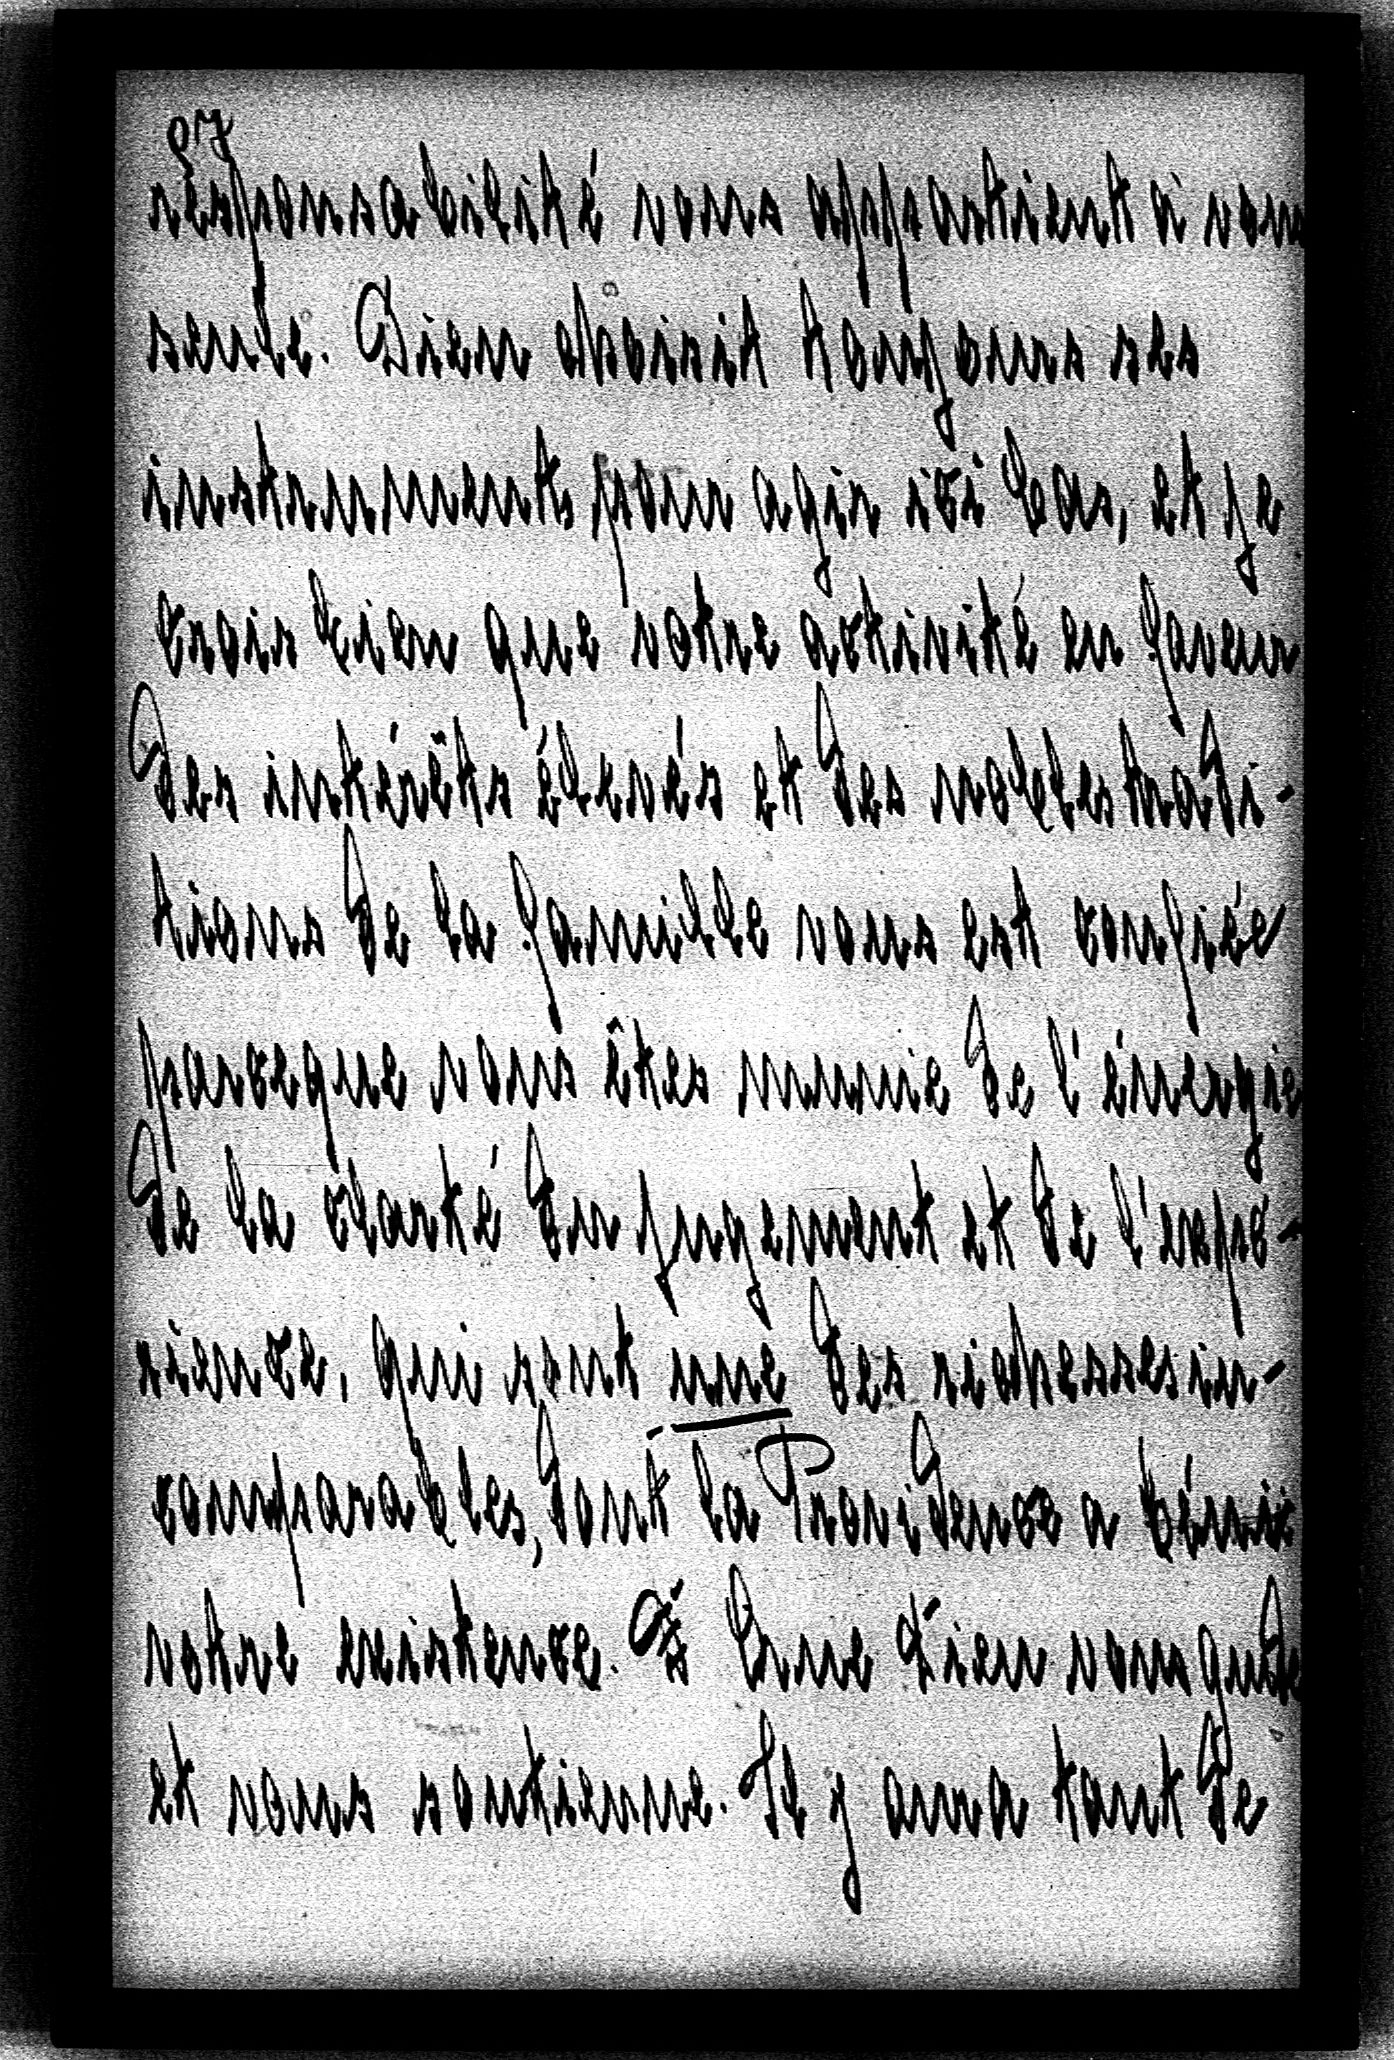 27
responsabilité vous appartient à vous
seule. Dieu choisit toujours ses
instruments pour agir ici bas, et je
crois bien que votre activité en faveur
des intérêts élevés et des nobles tradi-
tions de la famille vous est confiée
parceque vous êtes munie de l'énergie
de la clarté du jugement et de l'expé-
rience, qui sont une des richesses in-
comparables, dont la Providence a béni
votre existence. Que Dieu vous guide
et vous soutienne. Il y aura tant de